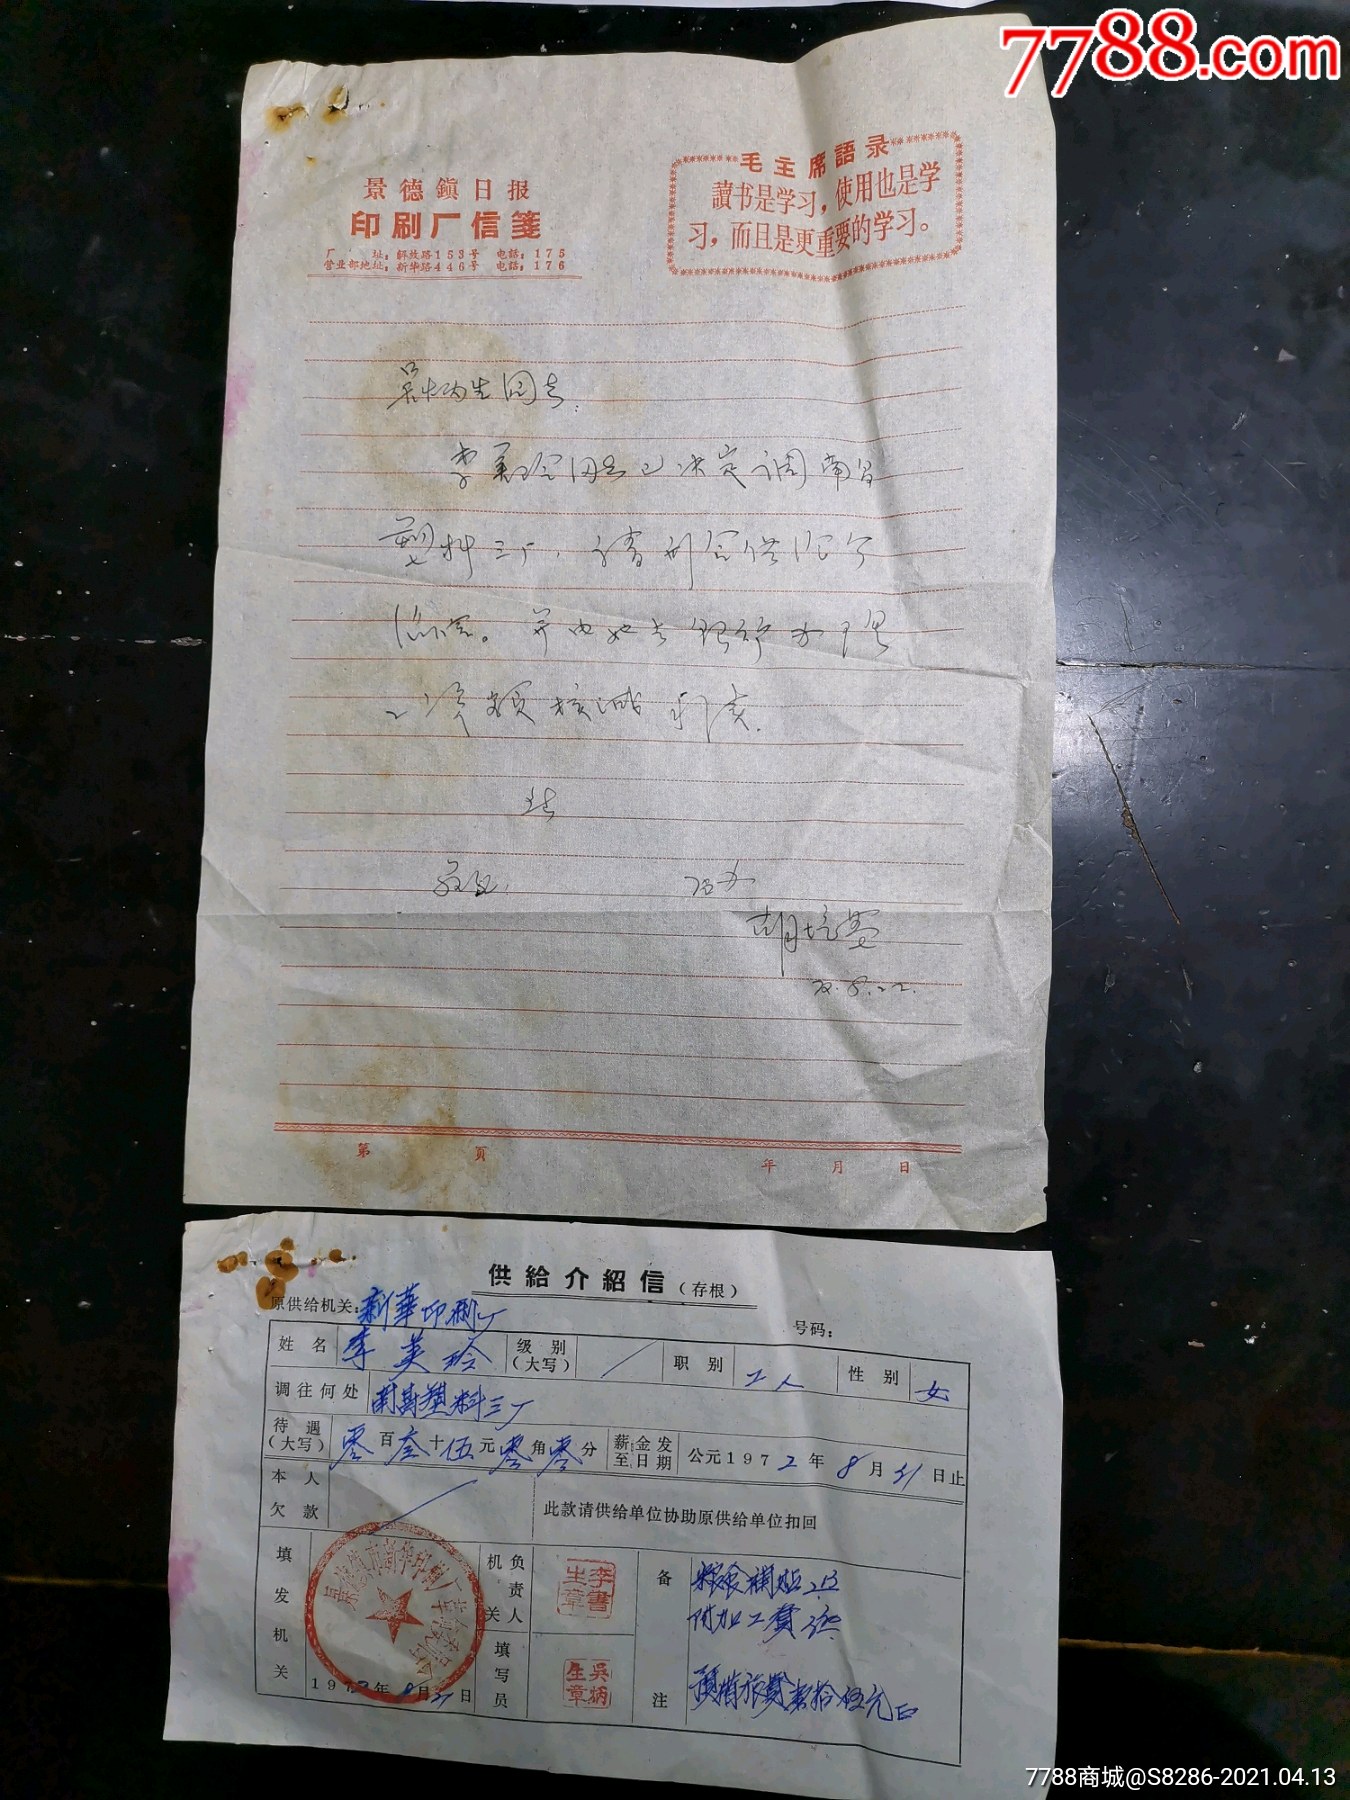 7788.com
毛主席語录
讀书是学习，使用也是学
习，而且是更重要的学习。
景德鎮日报
印刷厂信笺
厂 址：解放路153号 电話：175
营业部地址：新华路446号 电話：176
吴炳生同志：
李美玲同志已决定调南昌
塑料三厂，请办
并由她去银行办理
核减
此
敬礼
胡培
72.8.22.
第 頁 年 月 日
供給介紹信（存根）
原供给机关：新華印刷厂
号码：
姓名 李美玲 级别（大写） 职别 工人 性别 女
调往何处 南昌塑料三厂
待遇（大写） 零百叁十伍元零角零分 薪金发至日期 公元1972年8月31日止
本人欠款 此款请供给单位协助原供给单位扣回
填发机关 1972年8月21日
机关负责人 李書生章
填写员 吳炳生章
备注 粮食補贴
附加工資
預借旅費叁拾伍元
7788商城@S8286-2021.04.13